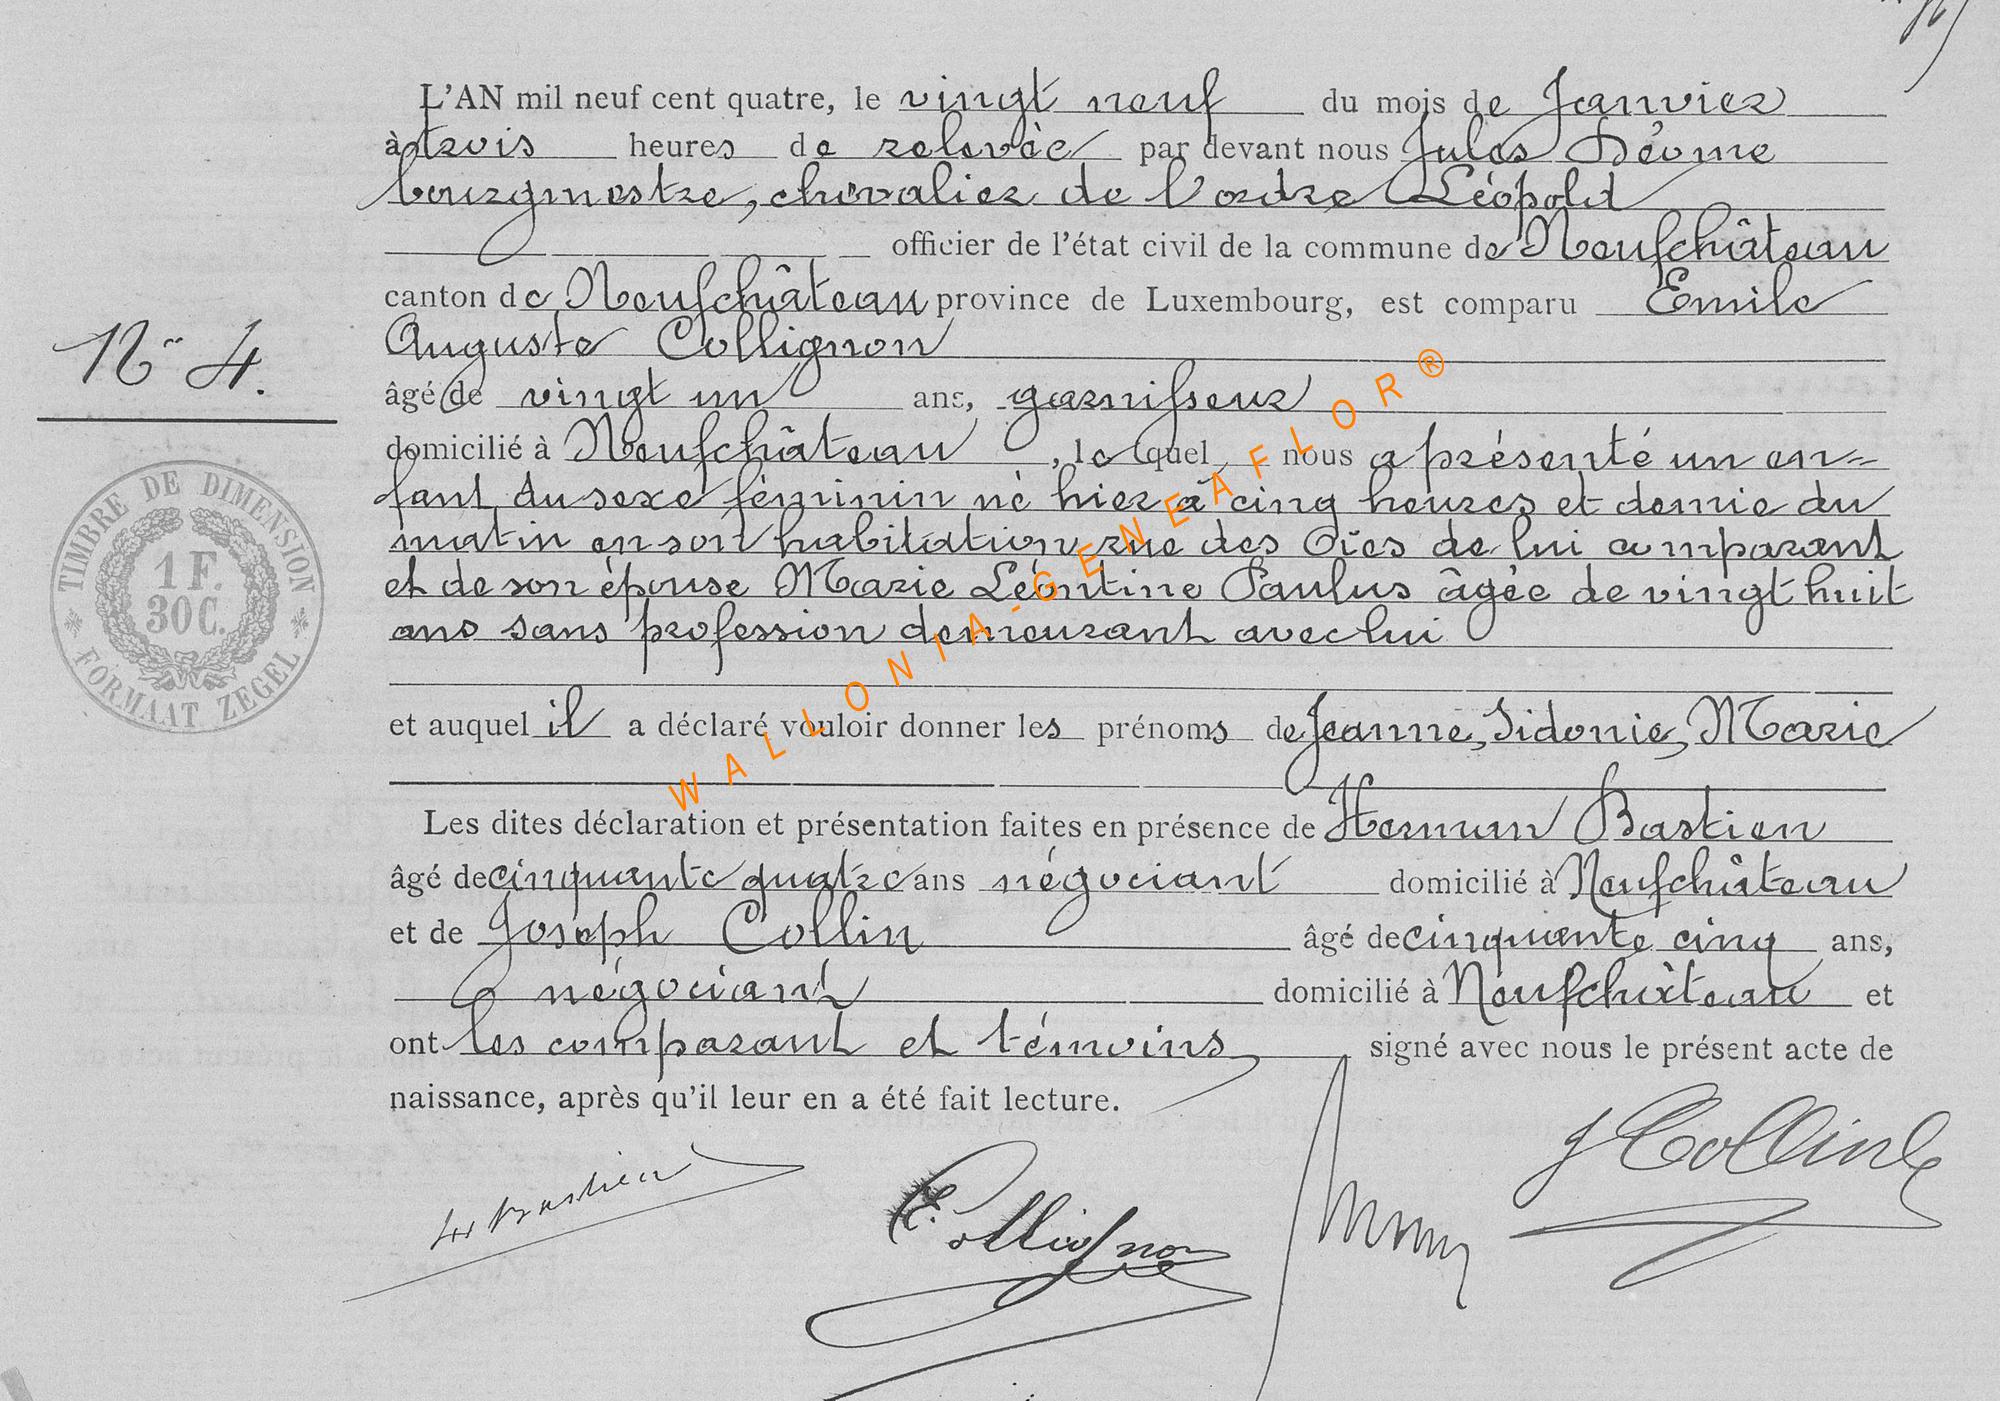 L'AN mil neuf cent quatre, le vingt neuf du mois de Janvier
à trois heures de relevée par devant nous Jules
bourgmestre, chevalier de l'ordre Léopold
officier de l'état civil de la commune de Neufchâteau
canton de Neufchâteau province de Luxembourg, est comparu Emile
Auguste Collignon
N° 4.
âgé de vingt un ans, garnisseur
domicilié à Neufchâteau, lequel nous a présenté un en=
fant du sexe féminin né hier à cinq heures et demie du
matin en son habitation rue des Oies de lui comparant
et de son épouse Marie Léontine Paulus âgée de vingt huit
ans sans profession demeurant avec lui
TIMBRE DE DIMENSION
1 F.
30 C.
FORMAAT ZEGEL
et auquel il a déclaré vouloir donner les prénoms de Jeanne, Sidonie, Marie
WALLONIA-GENEAFLOR®
Les dites déclaration et présentation faites en présence de Herman Bastien
âgé de cinquante quatre ans négociant domicilié à Neufchâteau
et de Joseph Collin âgé de cinquante cinq ans,
négociant domicilié à Neufchâteau et
ont les comparant et témoins signé avec nous le présent acte de
naissance, après qu'il leur en a été fait lecture.
H Bastien
E. Collignon
J Collin